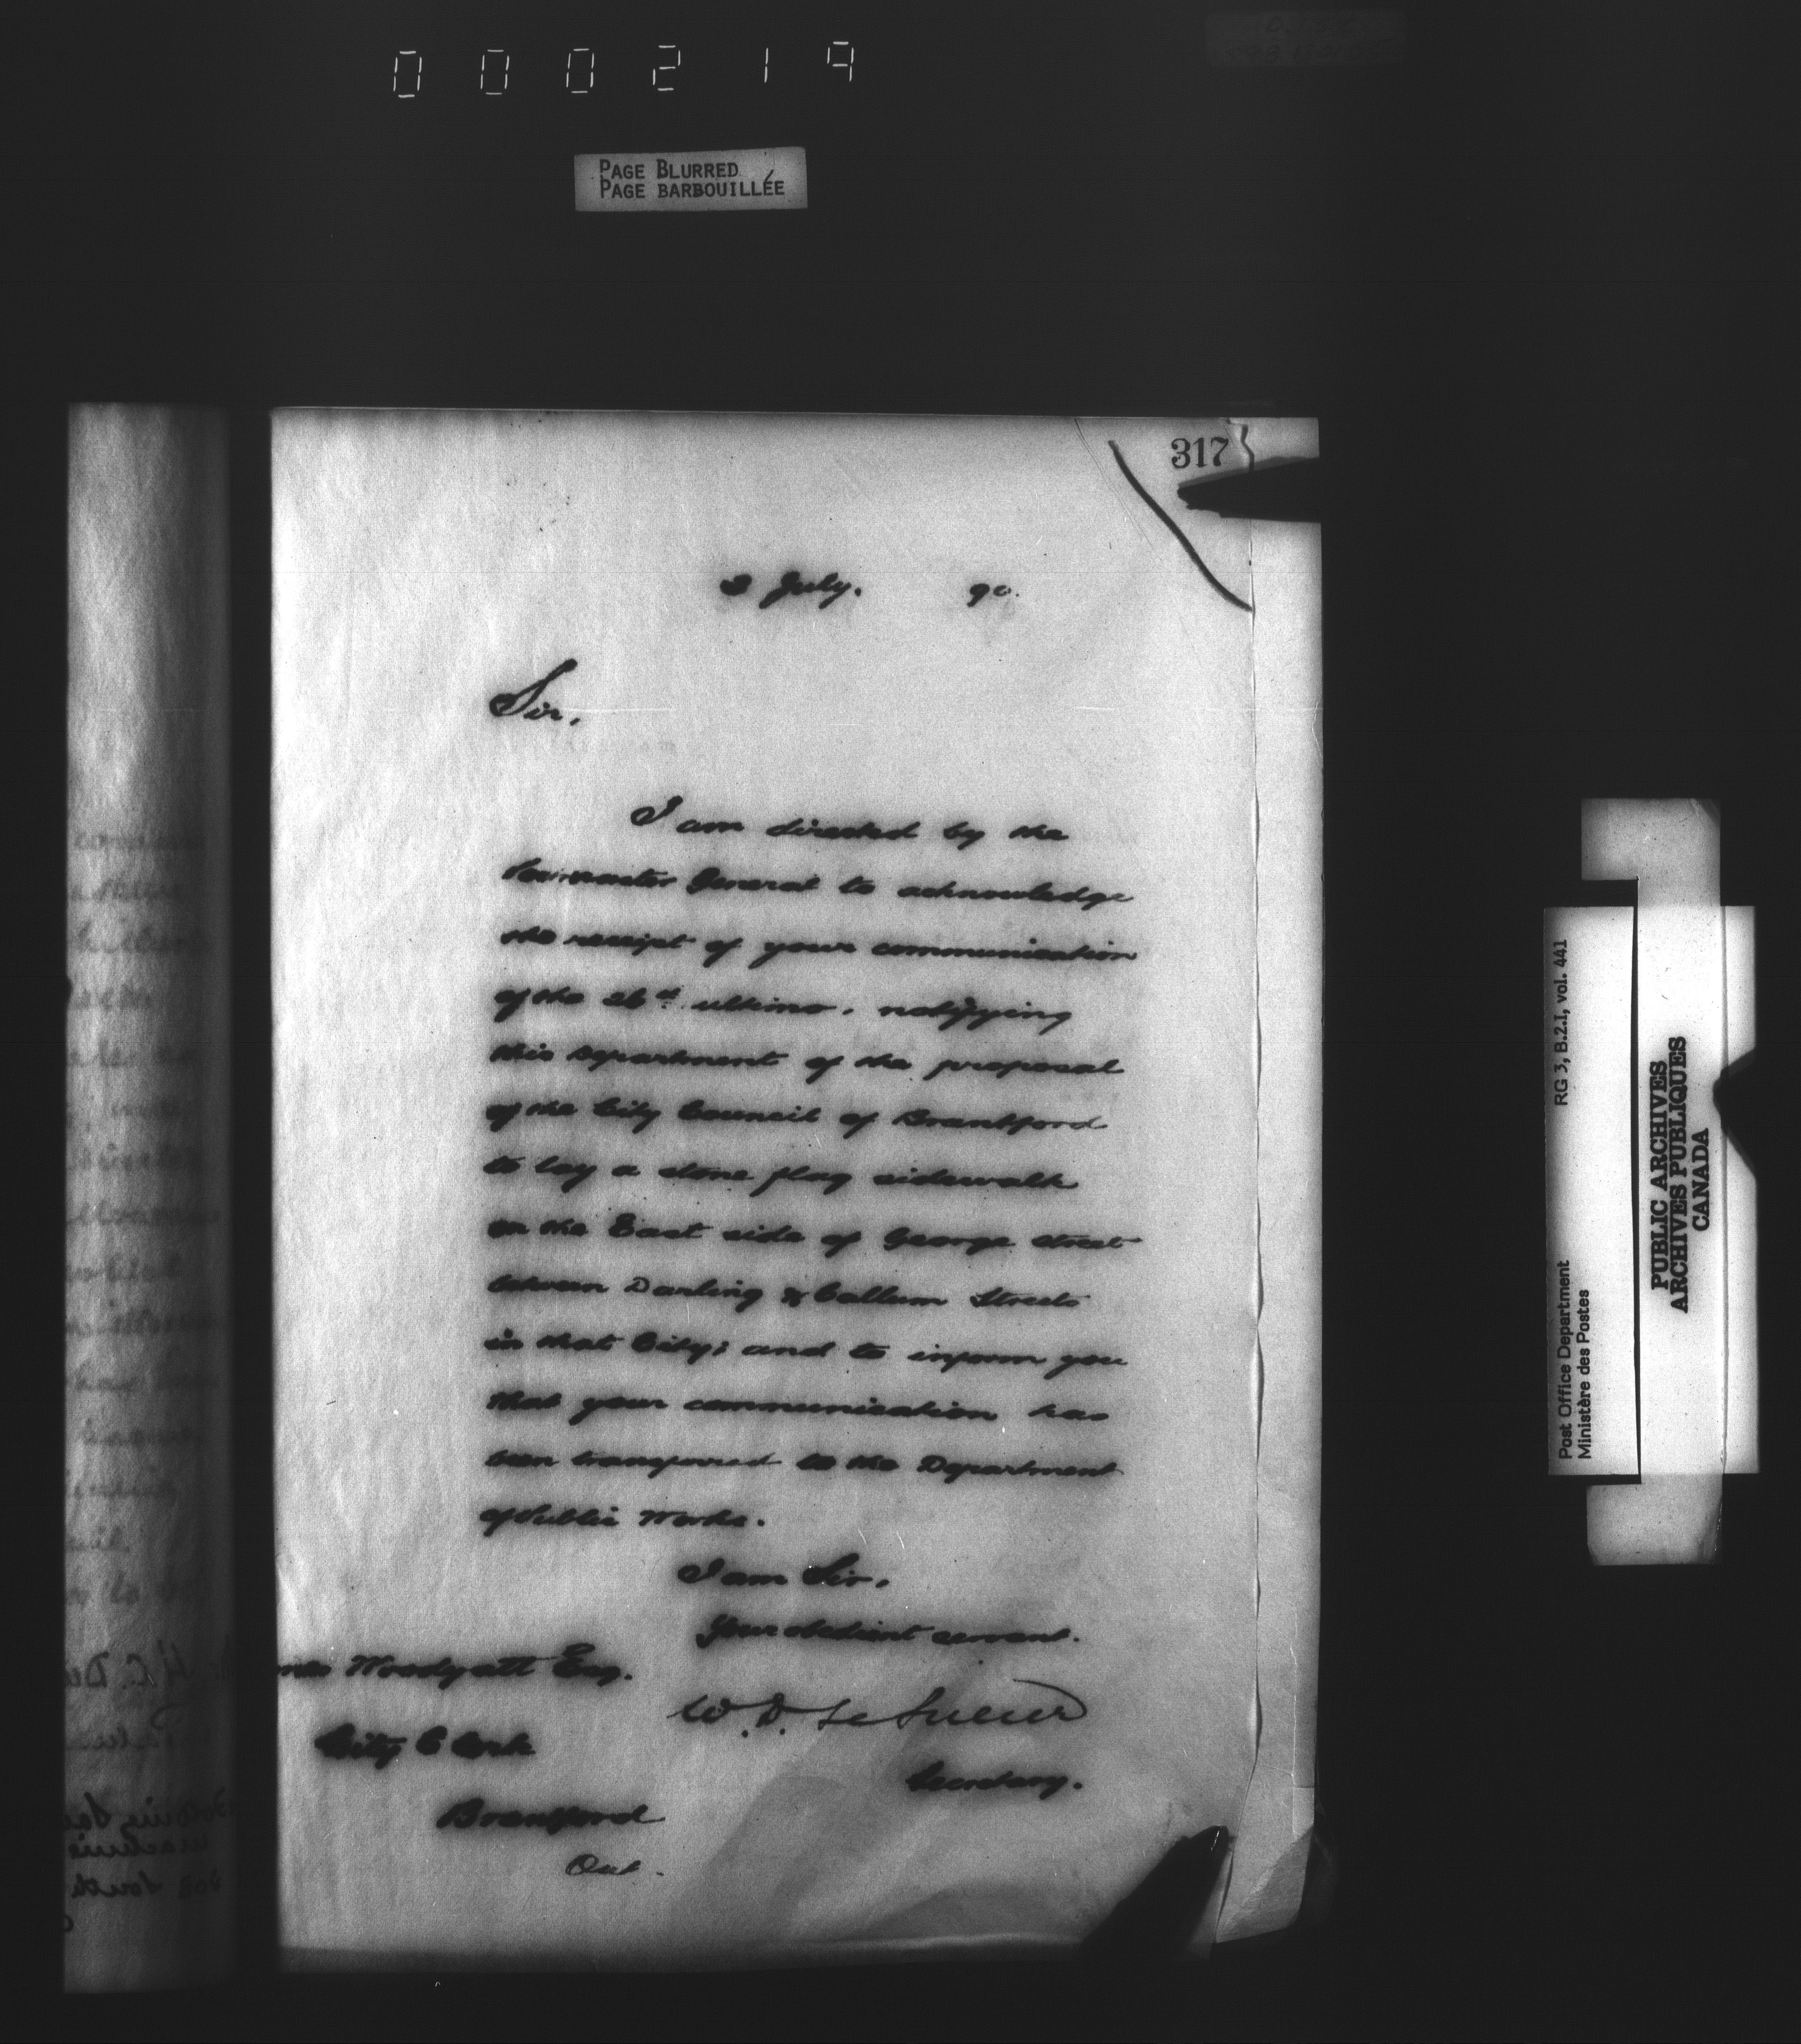 000219
PAGE BLURRED
PAGE BARBOUILLÉE
317
July. 90.
Sir,
I am directed by the
Postmaster General to acknowledge
the receipt of your communication
of the 26th ultimo, notifying
this Department of the proposal
of the City Council of Brantford
to lay a stone flag sidewalk
on the East side of George street
between Darling & Callum Streets
in that City; and to inform you
that your communication has
been transferred to the Department
of Public Works.
I am Sir,
Your obedient servant.
W. D. LeSueur
Secretary.
Woodyatt Esq.
City Clerk
Brantford
Ont.
RG 3, B.2.I, vol. 441
Post Office Department
Ministère des Postes
PUBLIC ARCHIVES
ARCHIVES PUBLIQUES
CANADA